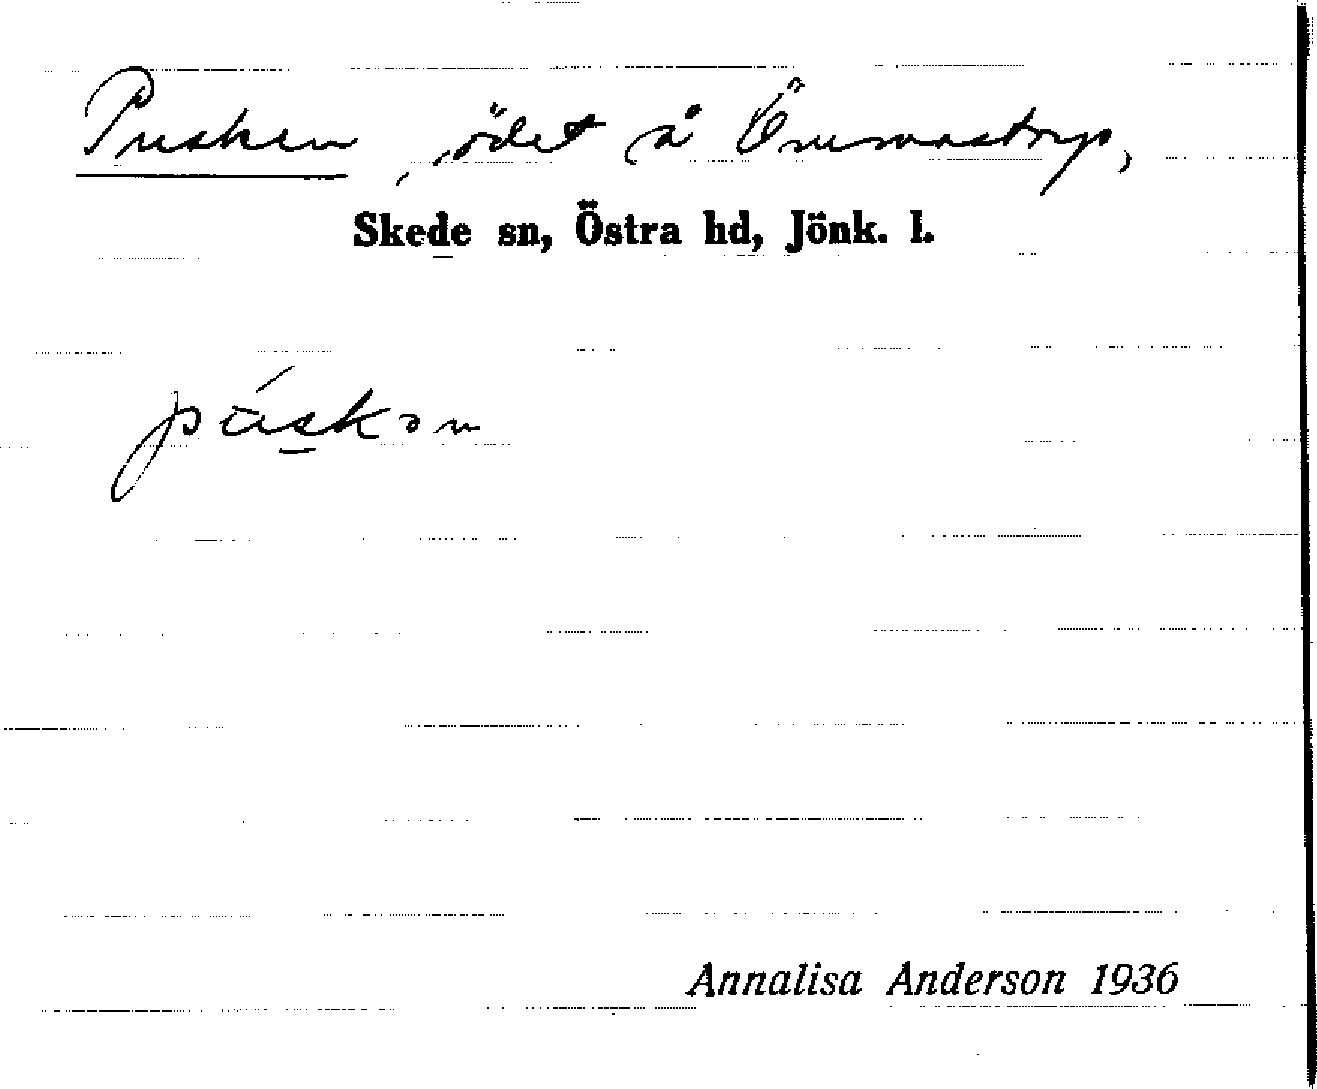 Pusken, ödet å Ömmastorp,
Skede sn, Östra hd, Jönk. l.
púskən
Annalisa Anderson 1936